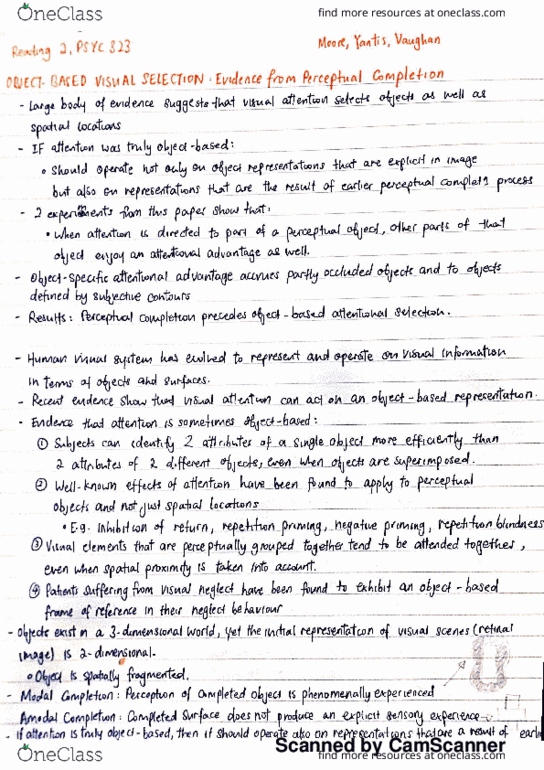 OneClass
find more resources at oneclass.com
Reading 2, PSYC 323
Moore, Yantis, Vaughan
OBJECT-BASED VISUAL SELECTION: Evidence from Perceptual Completion
- Large body of evidence suggests that visual attention selects objects as well as
spatial locations
- IF attention was truly object-based:
• Should operate not only on object representations that are explicit in image
but also on representations that are the result of earlier perceptual completn process
- 2 experiments from this paper show that:
• When attention is directed to part of a perceptual object, other parts of that
object enjoy an attentional advantage as well.
- Object-specific attentional advantage accrues partly occluded objects and to objects
defined by subjective contours
- Results: Perceptual completion precedes object-based attentional selection.
- Human visual system has evolved to represent and operate on visual information
in terms of objects and surfaces.
- Recent evidence show that visual attention can act on an object-based representation.
- Evidence that attention is sometimes object-based:
① Subjects can identify 2 attributes of a single object more efficiently than
2 attributes of 2 different objects, even when objects are superimposed.
② Well-known effects of attention have been found to apply to perceptual
objects and not just spatial locations
• E.g. Inhibition of return, repetition priming, negative priming, repetition blindness
③ Visual elements that are perceptually grouped together tend to be attended together,
even when spatial proximity is taken into account.
④ Patients suffering from visual neglect have been found to exhibit an object-based
frame of reference in their neglect behaviour
- Objects exist in a 3-dimensional world, yet the initial representation of visual scenes (retinal
image) is 2-dimensional.
• Object is spatially fragmented.
- Modal Completion: Perception of completed object is phenomenally experienced
Amodal Completion: Completed Surface does not produce an explicit sensory experience
- If attention is truly object-based, then it should operate also on representations that are a result of
OneClass
Scanned by CamScanner